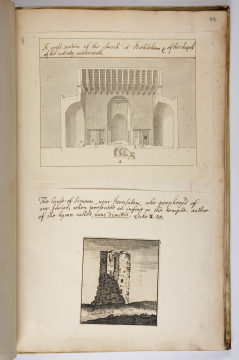 A cross section of the church at Bethlehem & of the chapel
of the nativity, underneath.
The house of Simeon, near Jerusalem, who prophesied of
our savior, when presented an infant in the temple, author
of the hymn called nunc dimittis. Luke II. 29.